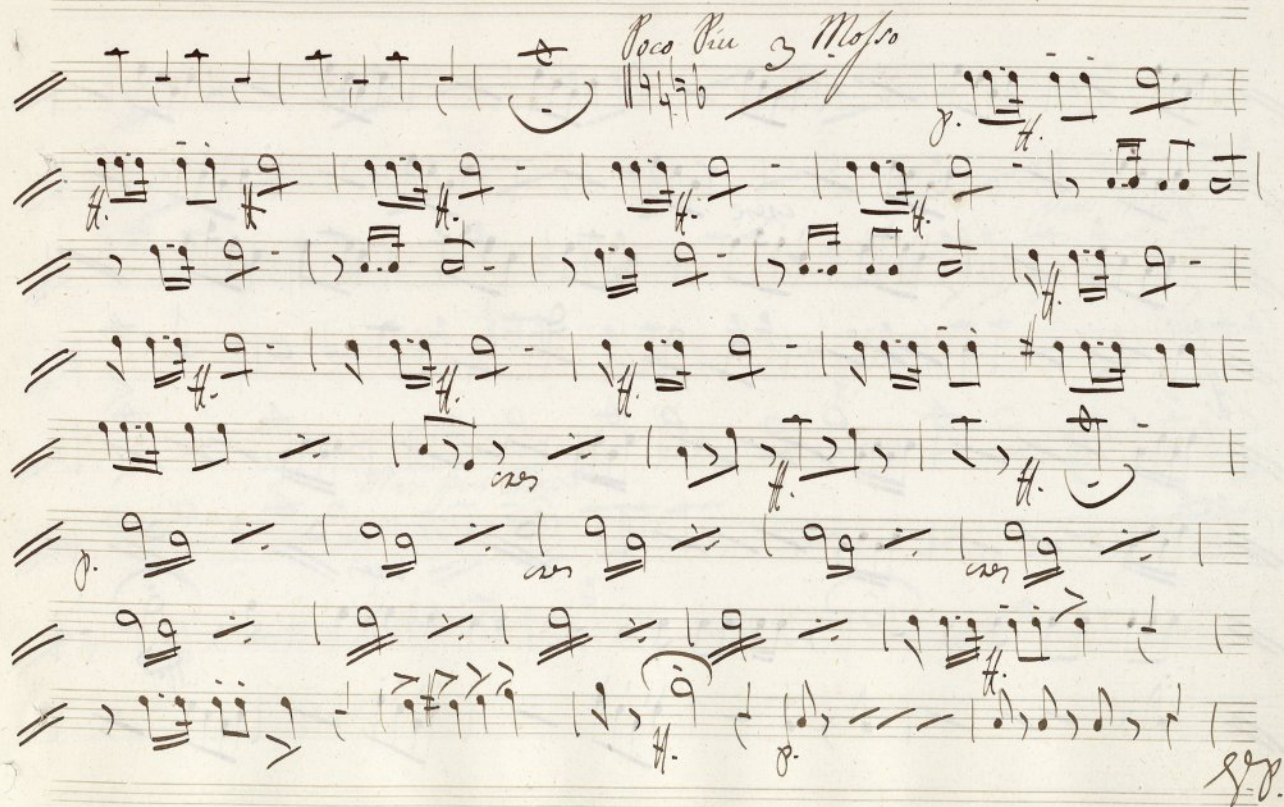 Poco Piu 3 Mosso
p. ff.
ff. ff. ff. ff. ff.
ff.
ff. ff. ff.
cres ff. ff.
p. cres cres
ff.
ff. p.